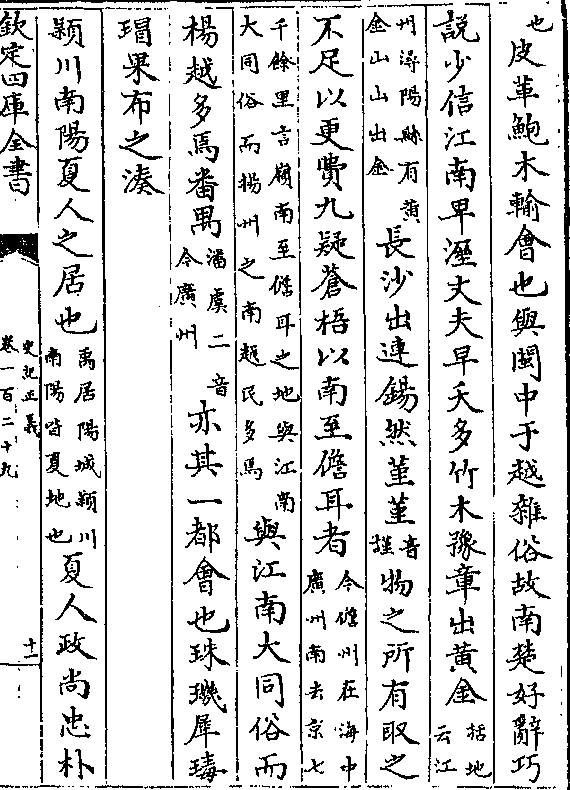 也皮革鮑木輸會也與閩中于越雜俗故南楚好辭巧
說少信江南卑溼丈夫早夭多竹木豫章出黄金括地云江
州潯陽縣有黄金山山出金長沙出連錫然堇堇音謹物之所有取之
不足以更費九疑蒼梧以南至儋耳者今儋州在海中廣州南去京七
千餘里言嶺南至儋耳之地與江南大同俗而揚州之南越民多焉與江南大同俗而
楊越多焉番禺潘虞二音今廣州亦其一都會也珠璣犀瑇
瑁果布之湊
潁川南陽夏人之居也禹居陽城潁川南陽皆夏地也夏人政尚忠朴
欽定四庫全書
史記正義
卷一百二十九
十一